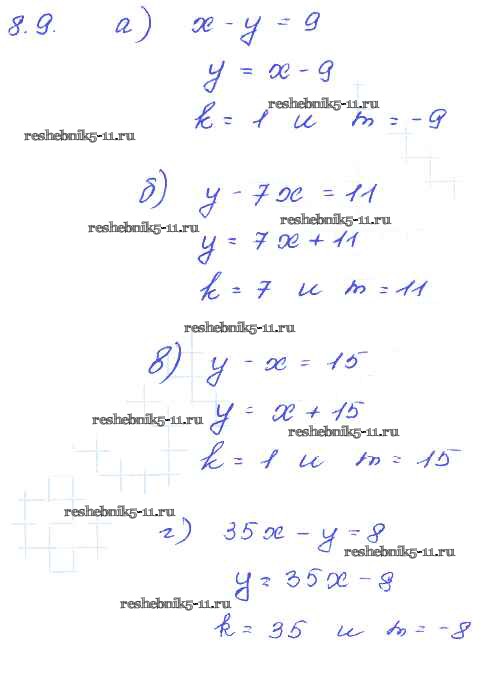 8.9. а) x - y = 9
y = x - 9
reshebnik5-11.ru
k = 1 и m = -9
reshebnik5-11.ru
б) y - 7x = 11
reshebnik5-11.ru
reshebnik5-11.ru
y = 7x + 11
k = 7 и m = 11
reshebnik5-11.ru
в) y - x = 15
y = x + 15
reshebnik5-11.ru
reshebnik5-11.ru
k = 1 и m = 15
reshebnik5-11.ru
г) 35x - y = 8
reshebnik5-11.ru
y = 35x - 8
reshebnik5-11.ru
k = 35 и m = -8